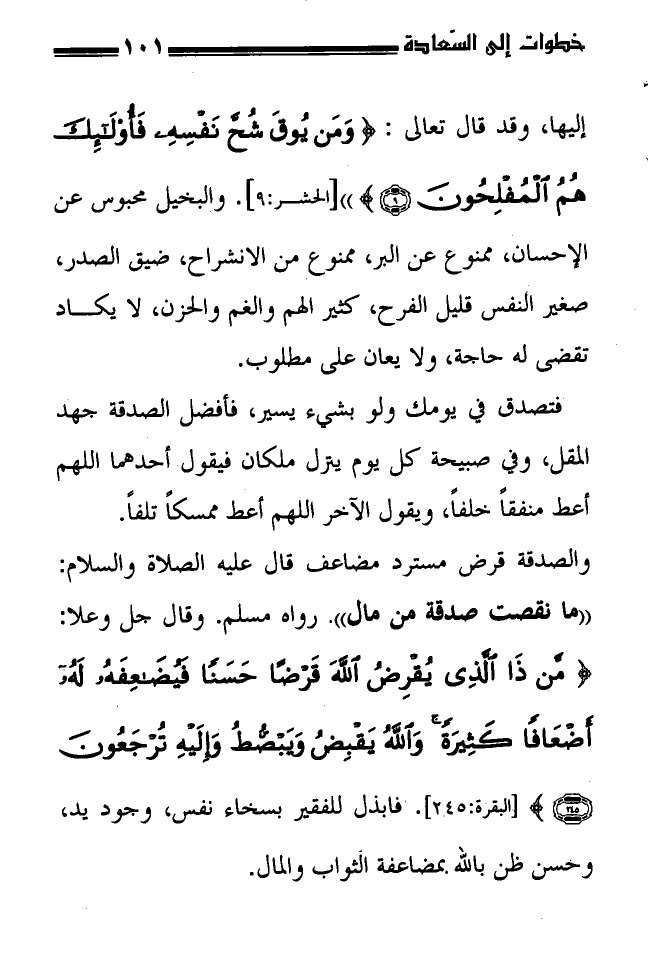 خطوات إلى السّعادة ١٠١
إليها، وقد قال تعالى : ﴿ وَمَن يُوقَ شُحَّ نَفْسِهِۦ فَأُوْلَـٰٓئِكَ
هُمُ ٱلْمُفْلِحُونَ ۝٩ ﴾))[الحشـر:٩]. والبخيل محبوس عن
الإحسان، ممنوع عن البر، ممنوع من الانشراح، ضيق الصدر،
صغير النفس قليل الفرح، كثير الهم والغم والحزن، لا يكــاد
تقضى له حاجة، ولا يعان على مطلوب.
فتصدق في يومك ولو بشيء يسير، فأفضل الصدقة جهد
المقل، وفي صبيحة كل يوم ينزل ملكان فيقول أحدهما اللهم
أعط منفقاً خلفاً، ويقول الآخر اللهم أعط ممسكاً تلفاً.
والصدقة قرض مسترد مضاعف قال عليه الصلاة والسلام:
((ما نقصت صدقة من مال)). رواه مسلم. وقال جل وعلا:
﴿ مَّن ذَا ٱلَّذِى يُقْرِضُ ٱللَّهَ قَرْضًا حَسَنًا فَيُضَـٰعِفَهُۥ لَهُۥٓ
أَضْعَافًا كَثِيرَةً ۚ وَٱللَّهُ يَقْبِضُ وَيَبْصُۜطُ وَإِلَيْهِ تُرْجَعُونَ
۝٢٤٥ ﴾ [البقرة:٢٤٥]. فابذل للفقير بسخاء نفس، وجود يد،
وحسن ظن بالله بمضاعفة الثواب والمال.